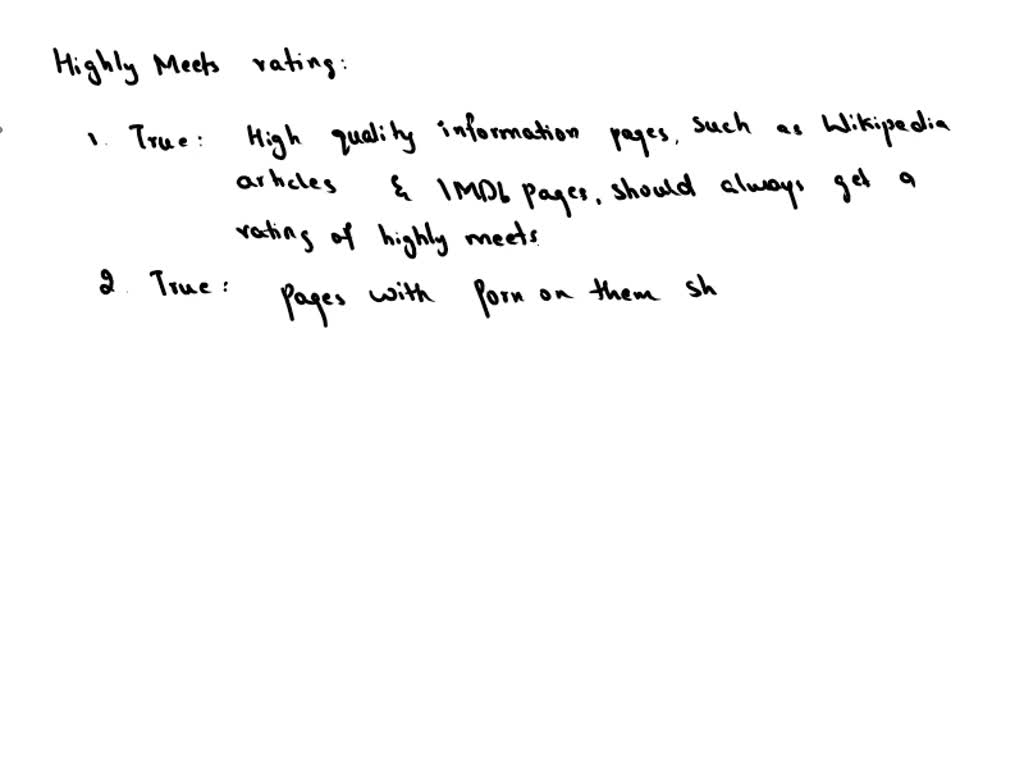 Highly Meets rating:
1. True: High quality information pages, such as Wikipedia
articles & IMDb pages, should always get a
rating of highly meets.
2. True: pages with porn on them sh